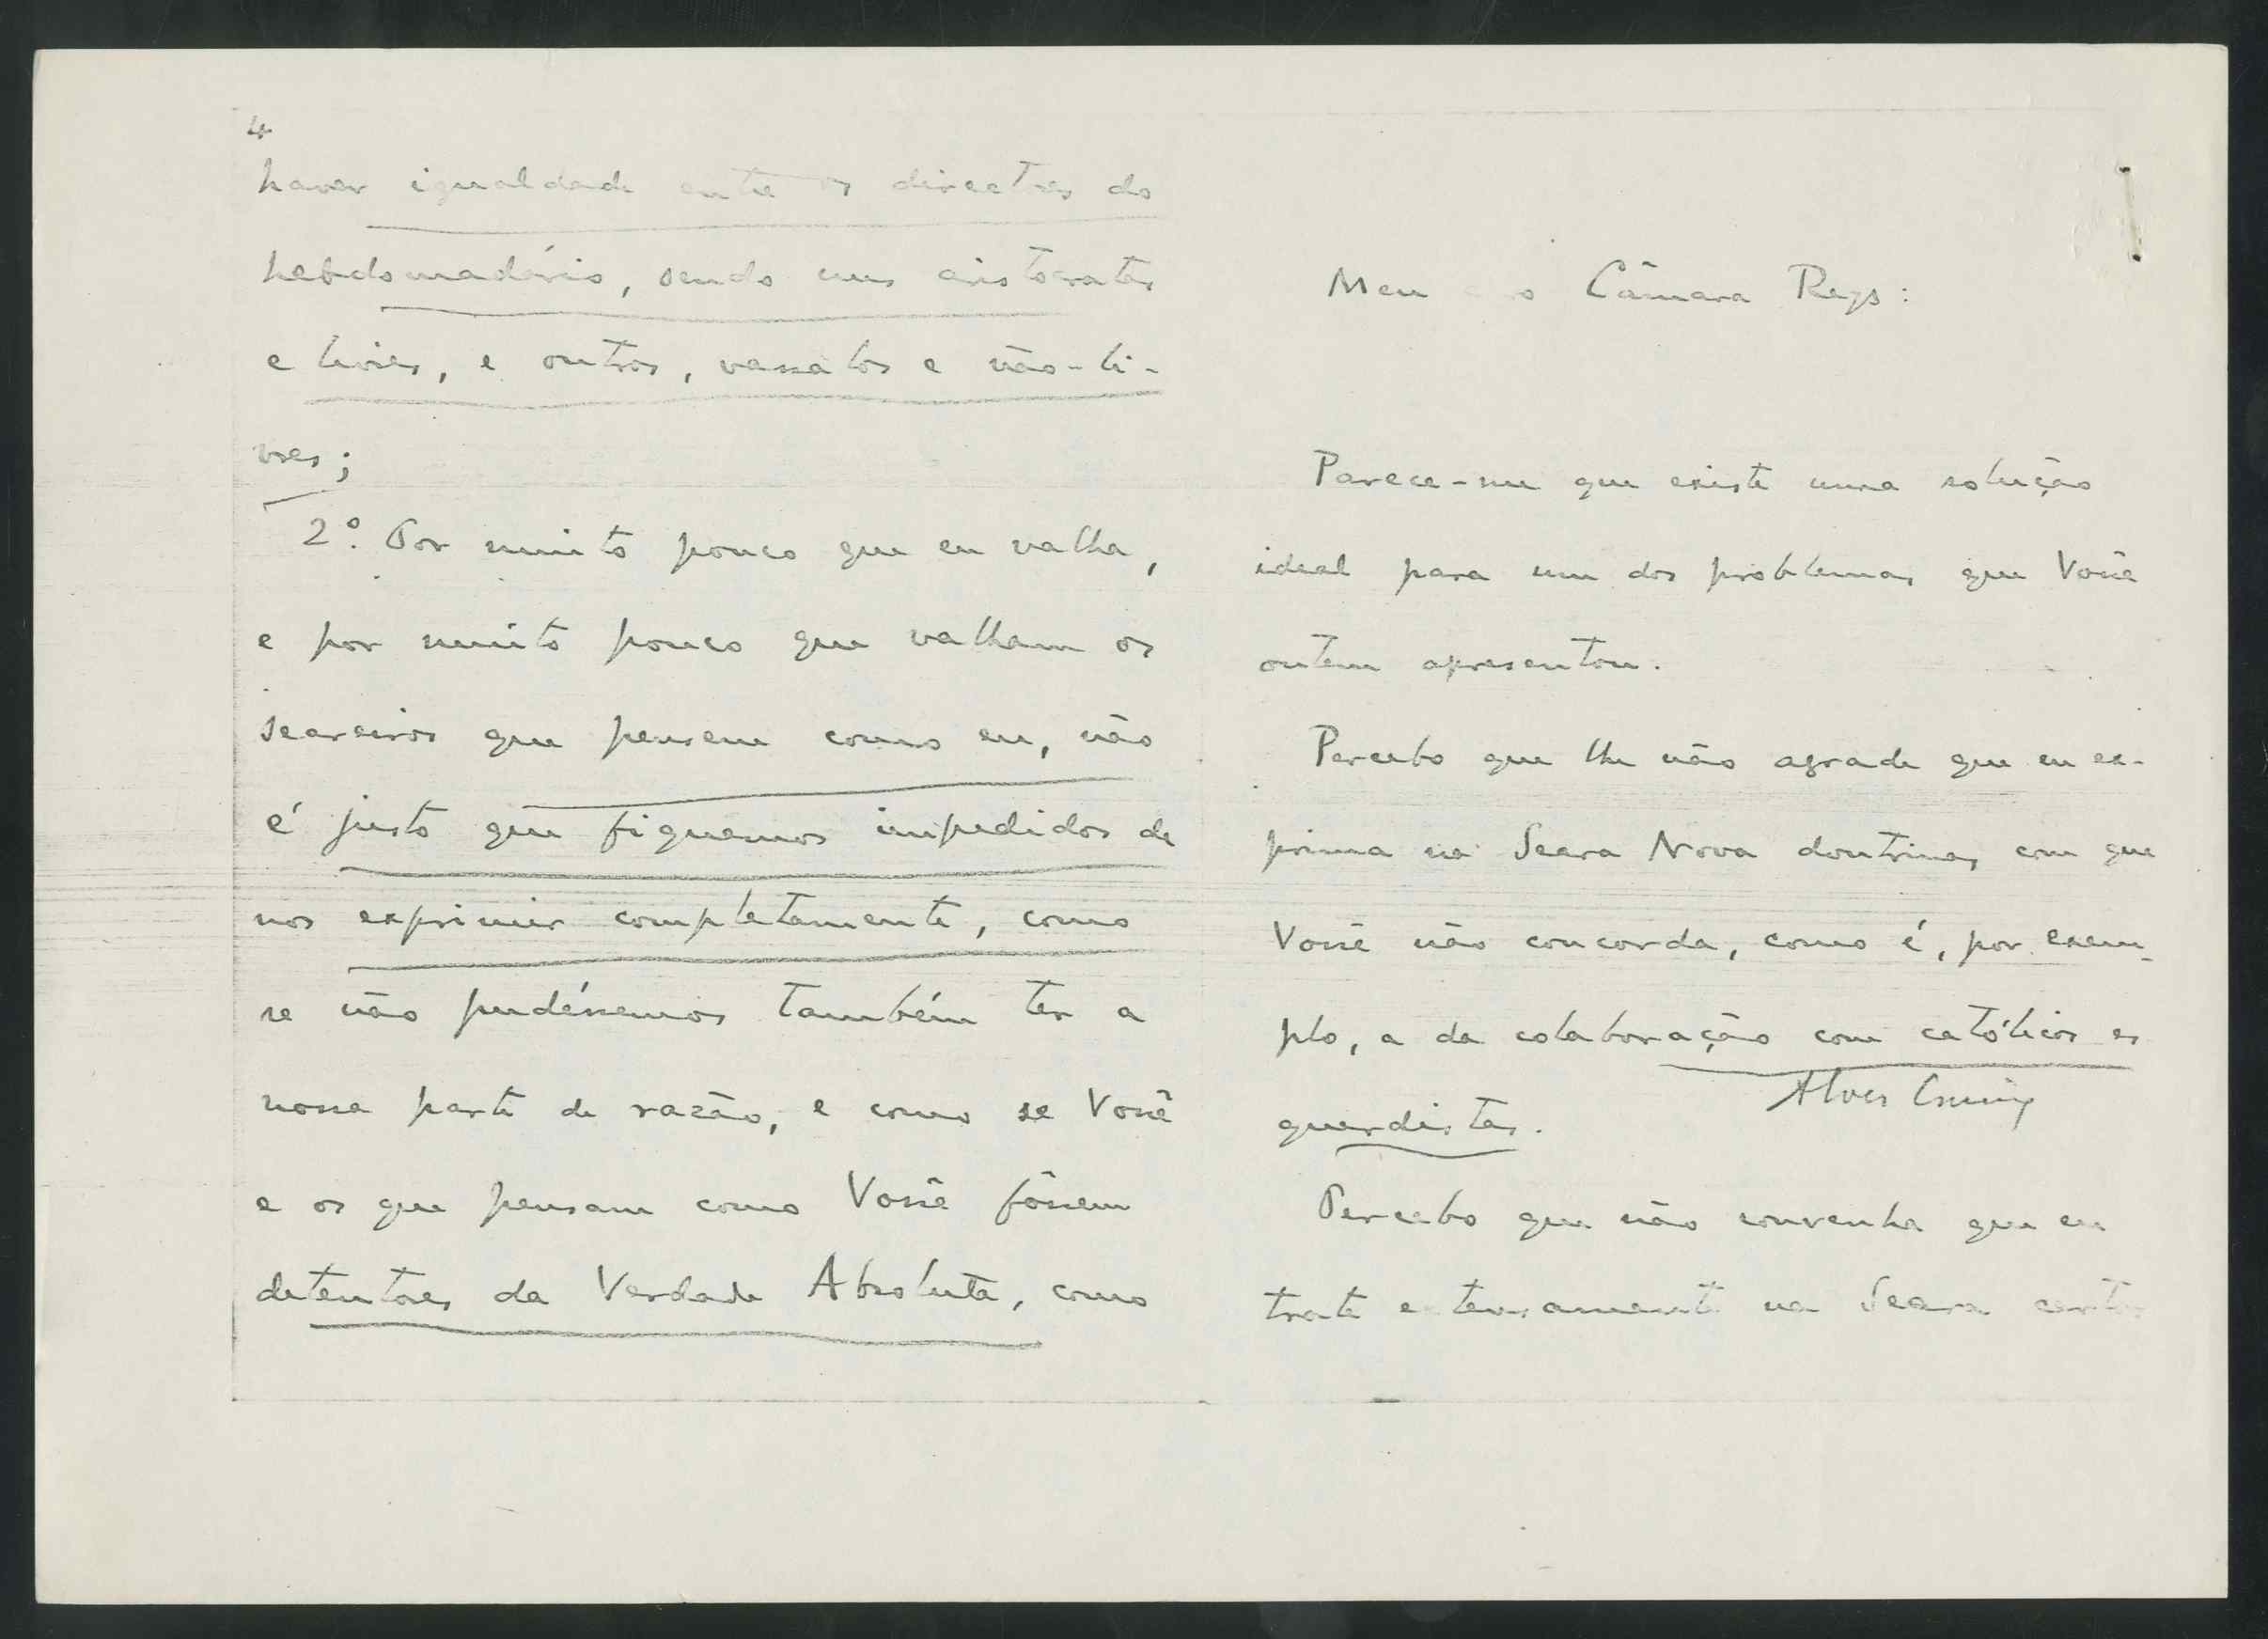 4
haver igualdade entre os directores do
hebdomadário, sendo uns aristocratas
e livres, e outros, vassalos e não-li-
vres;
2º. Por muito pouco que eu valha,
e por muito pouco que valham os
seareiros que pensem como eu, não
é justo que fiquemos impedidos de
nos exprimir completamente, como
se não pudéssemos também ter a
nossa parte de razão, e como se Você
e os que pensam como Você fôssem
detentores da Verdade Absoluta, como
Meu Câmara Reys:
Parece-me que existe uma solução
ideal para um dos problemas que Você
ontem apresentou.
Percebo que lhe não agrade que eu ex-
prima na Seara Nova doutrinas com que
Você não concorda, como é, por exem-
plo, a da colaboração com católicos es
querdistas.
Alves
Percebo que não convenha que eu
trate extensamente na Seara certos